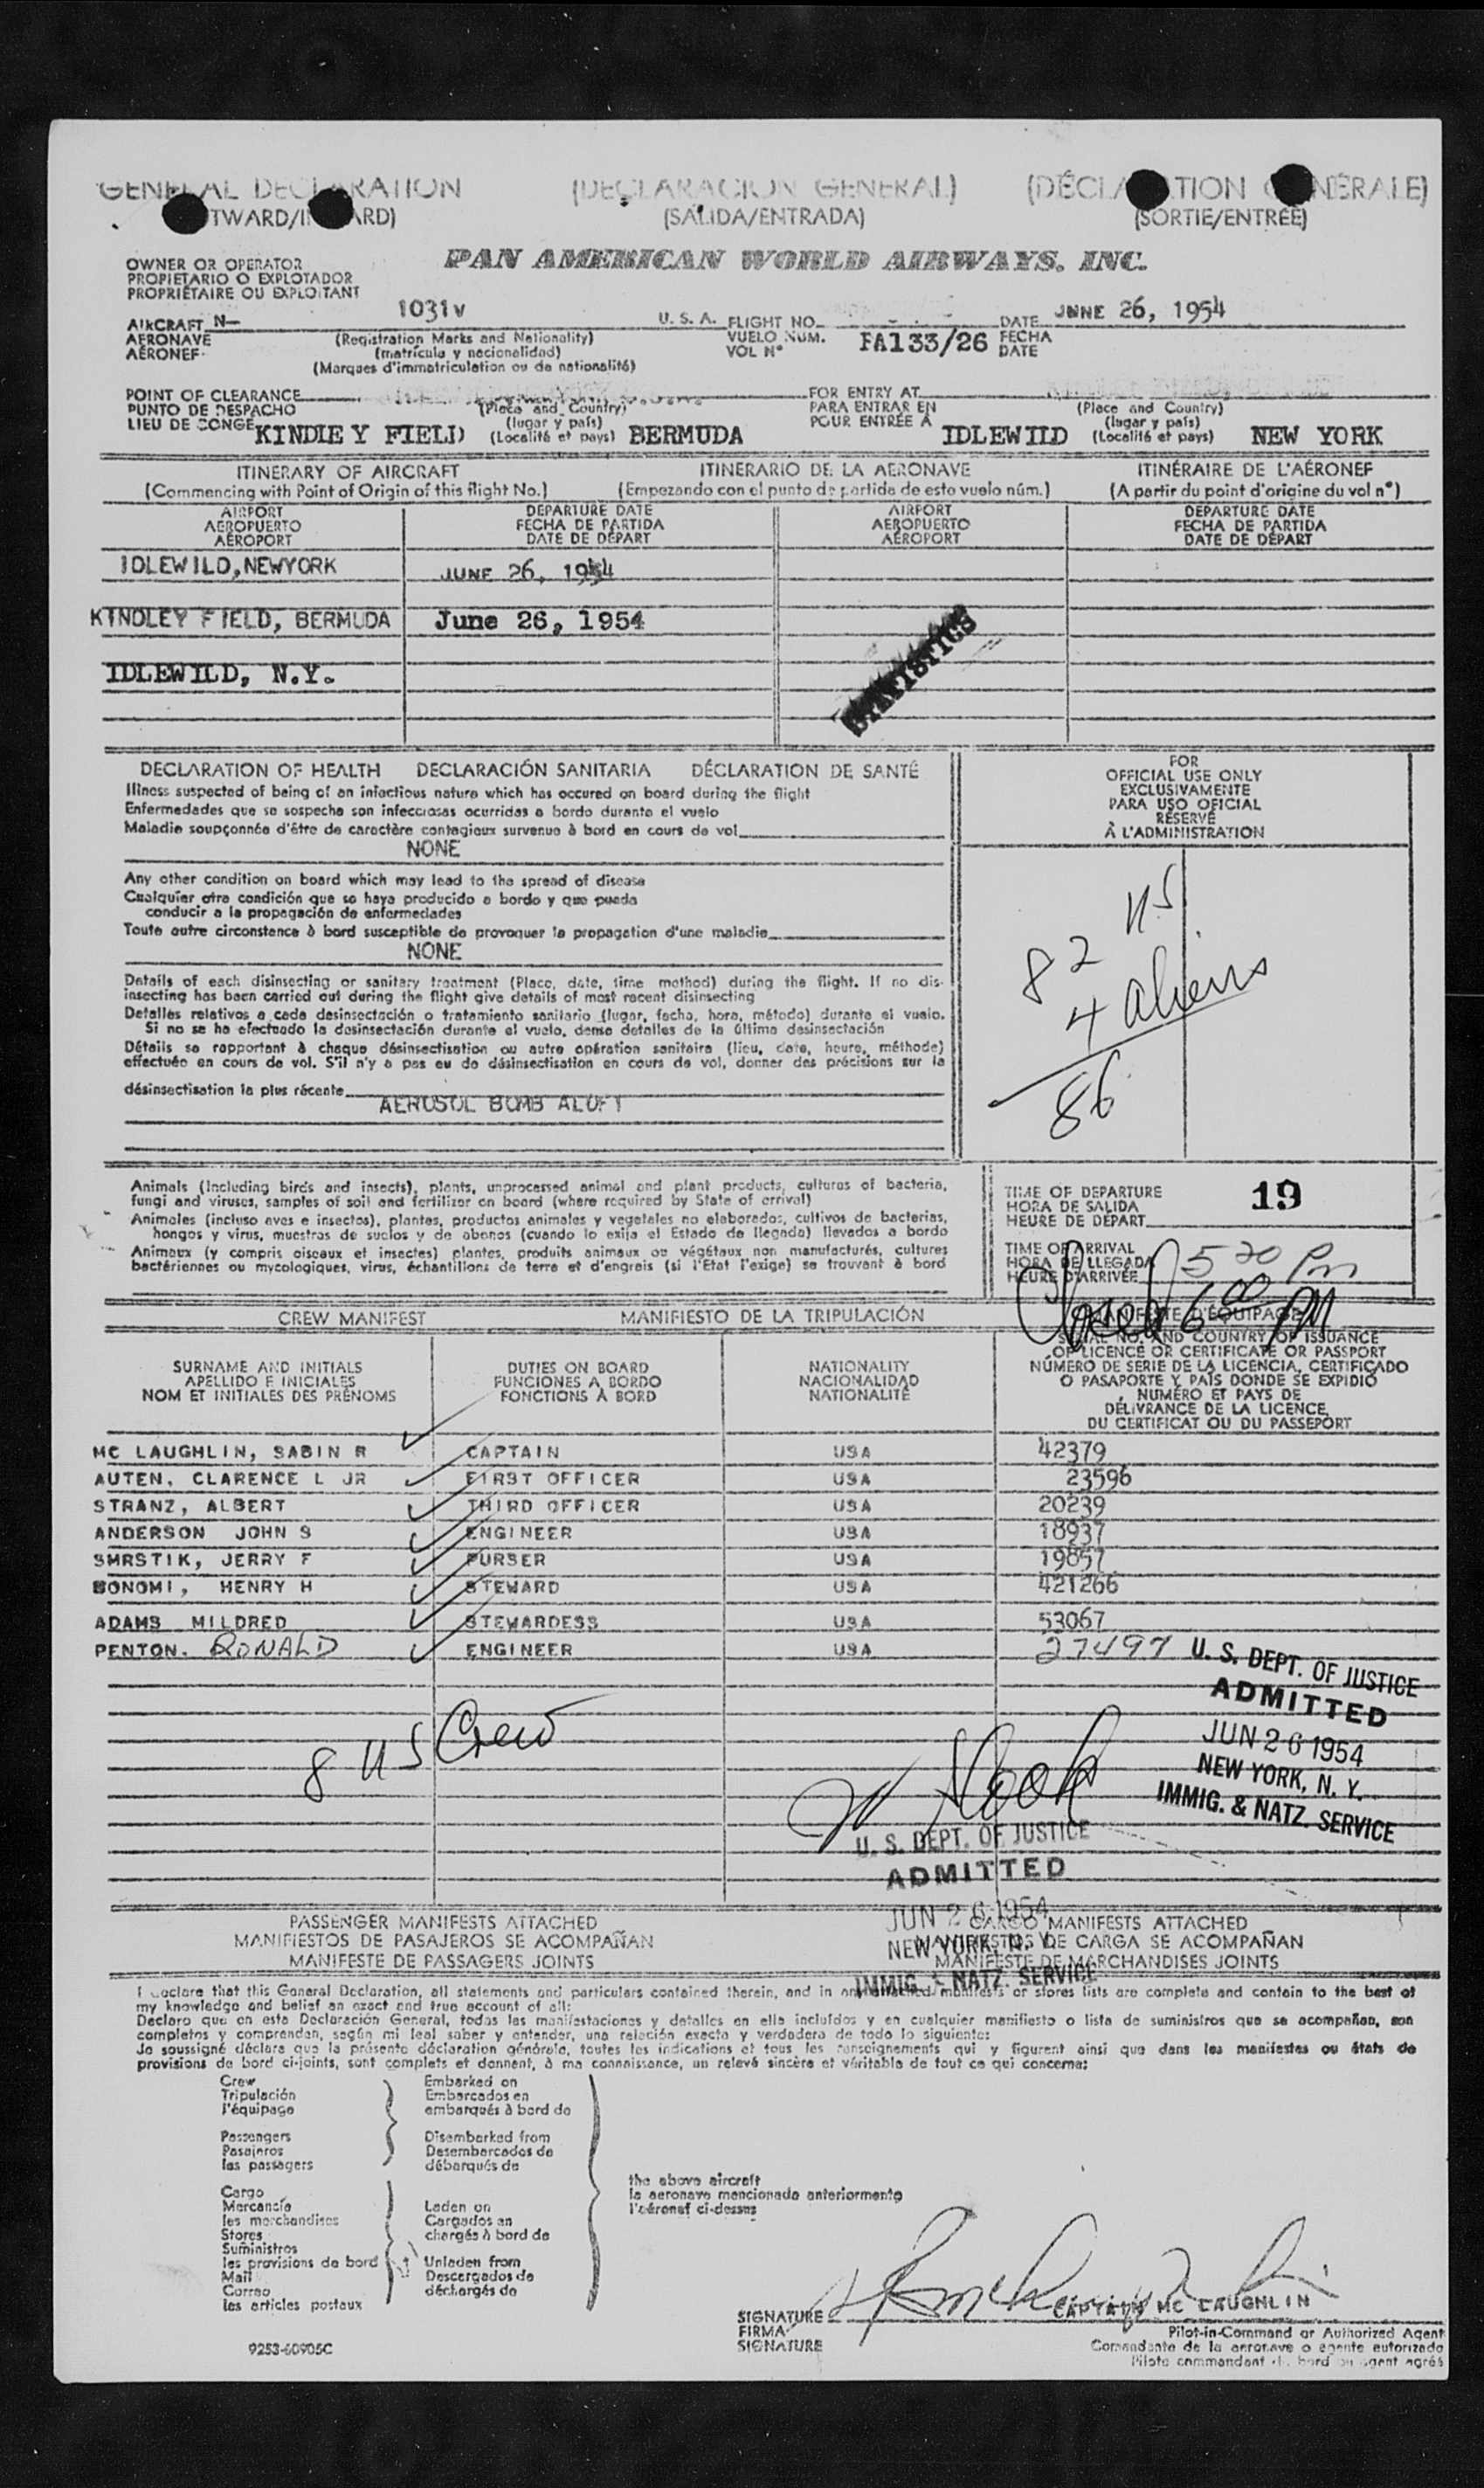 GENERAL DECLARATION (DECLARACION GENERAL) (DÉCLARATION GÉNÉRALE)
(OUTWARD/INWARD) (SALIDA/ENTRADA) (SORTIE/ENTRÉE)
OWNER OR OPERATOR
PROPIETARIO O EXPLOTADOR
PROPRIÉTAIRE OU EXPLOITANT
PAN AMERICAN WORLD AIRWAYS, INC.
AIRCRAFT N- 1031V U. S. A. FLIGHT NO. DATE JUNE 26, 1954
AERONAVE (Registration Marks and Nationality) VUELO NUM. FA133/26 FECHA
AÉRONEF (matrícula y nacionalidad) VOL N° DATE
(Marques d'immatriculation ou de nationalité)
POINT OF CLEARANCE (Place and Country) FOR ENTRY AT (Place and Country)
PUNTO DE DESPACHO (lugar y país) PARA ENTRAR EN (lugar y país)
LIEU DE CONGE KINDLEY FIELD (Localité et pays) BERMUDA POUR ENTRÉE A IDLEWILD (Localité et pays) NEW YORK
ITINERARY OF AIRCRAFT ITINERARIO DE LA AERONAVE ITINÉRAIRE DE L'AÉRONEF
(Commencing with Point of Origin of this flight No.) (Empezando con el punto de partida de esto vuelo núm.) (A partir du point d'origine du vol n°)
AIRPORT DEPARTURE DATE AIRPORT DEPARTURE DATE
AEROPUERTO FECHA DE PARTIDA AEROPUERTO FECHA DE PARTIDA
AÉROPORT DATE DE DÉPART AÉROPORT DATE DE DÉPART
IDLEWILD, NEWYORK JUNE 26, 1954
KINDLEY FIELD, BERMUDA June 26, 1954
IDLEWILD, N.Y.
STATISTICS
DECLARATION OF HEALTH DECLARACIÓN SANITARIA DÉCLARATION DE SANTÉ
Illness suspected of being of an infectious nature which has occured on board during the flight
Enfermedades que se sospecha son infecciosas ocurridas a bordo durante el vuelo
Maladie soupçonnée d'être de caractère contagieux survenue à bord en cours de vol
NONE
Any other condition on board which may lead to the spread of disease
Cualquier otra condición que se haya producido a bordo y que pueda
conducir a la propagación de enfermedades
Toute autre circonstance à bord susceptible de provoquer la propagation d'une maladie
NONE
Details of each disinsecting or sanitary treatment (Place, date, time method) during the flight. If no dis-
insecting has been carried out during the flight give details of most recent disinsecting
Detalles relativos a cada desinsectación o tratamiento sanitario (lugar, fecha, hora, método) durante el vuelo.
Si no se ha efectuado la desinsectación durante el vuelo, dense detalles de la última desinsectación
Détails se rapportant à chaque désinsectisation ou autre opération sanitaire (lieu, date, heure, méthode)
effectuée en cours de vol. S'il n'y a pas eu de désinsectisation en cours de vol, donner des précisions sur la
désinsectisation la plus récente
AEROSOL BOMB ALOFT
FOR
OFFICIAL USE ONLY
EXCLUSIVAMENTE
PARA USO OFICIAL
RÉSERVÉ
À L'ADMINISTRATION
82 US
4 aliens
86
Animals (Including birds and insects), plants, unprocessed animal and plant products, cultures of bacteria,
fungi and viruses, samples of soil and fertilizer on board (where required by State of arrival)
Animales (incluso aves e insectos), plantas, productos animales y vegetales no elaborados, cultivos de bacterias,
hongos y virus, muestras de suelos y de abonos (cuando lo exija el Estado de llegada) llevados a bordo
Animaux (y compris oiseaux et insectes) plantes, produits animaux ou végétaux non manufacturés, cultures
bactériennes ou mycologiques, virus, échantillons de terre et d'engrais (si l'État l'exige) se trouvant à bord
TIME OF DEPARTURE
HORA DE SALIDA
HEURE DE DÉPART
19
TIME OF ARRIVAL
HORA DE LLEGADA
HEURE D'ARRIVÉE
5 20 Pm
6 00 PM
CREW MANIFEST MANIFIESTO DE LA TRIPULACIÓN MANIFESTE D'ÉQUIPAGE
SURNAME AND INITIALS
APELLIDO E INICIALES
NOM ET INITIALES DES PRÉNOMS
DUTIES ON BOARD
FUNCIONES A BORDO
FONCTIONS À BORD
NATIONALITY
NACIONALIDAD
NATIONALITÉ
SERIAL NO. AND COUNTRY OF ISSUANCE
OF LICENCE OR CERTIFICATE OR PASSPORT
NÚMERO DE SERIE DE LA LICENCIA, CERTIFICADO
O PASAPORTE Y PAÍS DONDE SE EXPIDIÓ
NUMÉRO ET PAYS DE
DÉLIVRANCE DE LA LICENCE,
DU CERTIFICAT OU DU PASSEPORT
MC LAUGHLIN, SABIN R CAPTAIN USA 42379
AUTEN, CLARENCE L JR FIRST OFFICER USA 23596
STRANZ, ALBERT THIRD OFFICER USA 20239
ANDERSON JOHN S ENGINEER USA 18937
SMRSTIK, JERRY F PURSER USA 19857
BONOMI, HENRY H STEWARD USA 421266
ADAMS MILDRED STEWARDESS USA 53067
PENTON. RONALD ENGINEER USA 27497
8 US Crew
U. S. DEPT. OF JUSTICE
ADMITTED
JUN 26 1954
NEW YORK, N. Y.
IMMIG. & NATZ. SERVICE
U. S. DEPT. OF JUSTICE
ADMITTED
JUN 26 1954
NEW YORK, N. Y.
IMMIG. & NATZ. SERVICE
PASSENGER MANIFESTS ATTACHED CARGO MANIFESTS ATTACHED
MANIFIESTOS DE PASAJEROS SE ACOMPAÑAN MANIFIESTOS DE CARGA SE ACOMPAÑAN
MANIFESTE DE PASSAGERS JOINTS MANIFESTE DE MARCHANDISES JOINTS
I declare that this General Declaration, all statements and particulars contained therein, and in any attached manifests or stores lists are complete and contain to the best of
my knowledge and belief an exact and true account of all:
Declaro que en esta Declaración General, todas las manifestaciones y detalles en ella incluídos y en cualquier manifiesto o lista de suministros que se acompañan, son
completos y comprenden, según mi leal saber y entender, una relación exacta y verdadera de todo lo siguiente:
Je soussigné déclare que la présente déclaration générale, toutes les indications et tous les renseignements qui y figurent ainsi que dans les manifestes ou états de
provisions de bord ci-joints, sont complets et donnent, à ma connaissance, un relevé sincère et véritable de tout ce qui concerne:
Crew
Tripulación
l'équipage
Passengers
Pasajeros
les passagers
Cargo
Mercancía
les marchandises
Stores
Suministros
les provisions de bord
Mail
Correo
les articles postaux
Embarked on
Embarcados en
embarqués à bord de
Disembarked from
Desembarcados de
débarqués de
Laden on
Cargados en
chargés à bord de
Unladen from
Descargados de
déchargés de
the above aircraft
la aeronave mencionada anteriormente
l'aéronef ci-dessus
CAPTAIN MC LAUGHLIN
SIGNATURE
FIRMA
SIGNATURE
Pilot-in-Command or Authorized Agent
Comandante de la aeronave o agente autorizado
Pilote commandant de bord ou agent agréé
9253-60905C